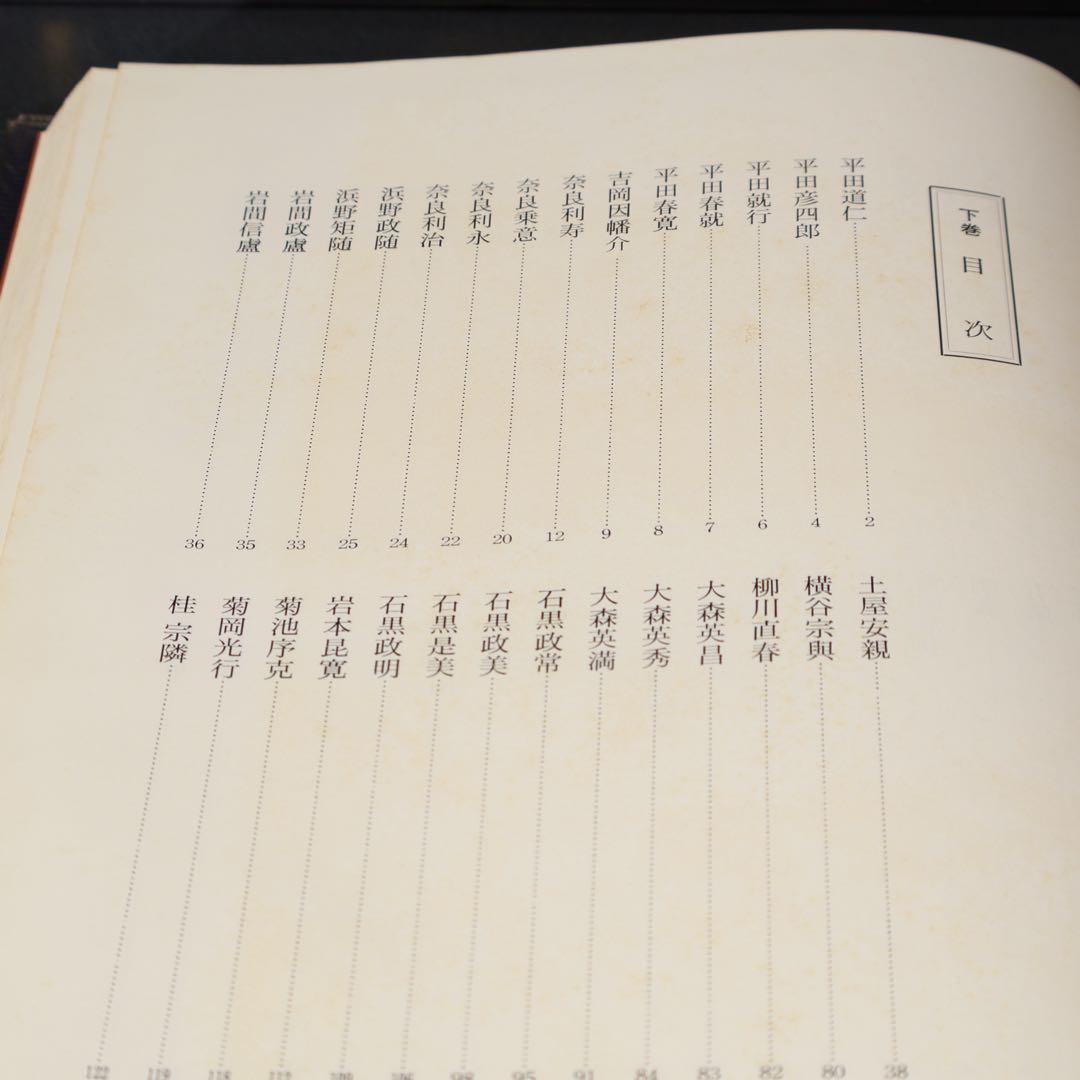 下巻 目次
平田道仁……2
平田彦四郎……4
平田就行……6
平田春就……7
平田春寛……8
吉岡因幡介……9
奈良利寿……12
奈良乗意……20
奈良利永……22
奈良利治……24
浜野政随……25
浜野矩随……33
岩間政盧……35
岩間信盧……36
土屋安親……38
横谷宗與……80
柳川直春……82
大森英昌……83
大森英秀……84
大森英満……91
石黒政常……95
石黒政美……98
石黒是美……106
石黒政明……109
岩本昆寛……112
菊池序克……118
菊岡光行……119
桂 宗隣……122